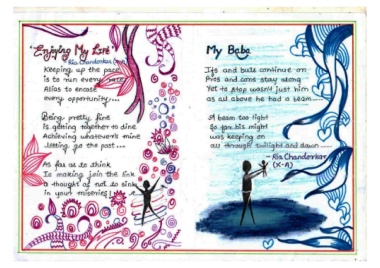 Enjoying My Life
- Ria Chandorkar
Keeping up the pace
is to run every race
Alias to encase
every opportunity...
Being pretty fine
Is getting together to dine
Achieving whatever's mine
Letting go the past...
As far as to think
Is making join the link
a thought of not to sink
in your miseries!
My Baba
Ifs and buts continue on
Pros and cons stay along
Yet to stop wasn't just him
as all above he had a beam......
A beam too light
So far his might
was keeping on
all through twilight and dawn......
- Ria Chandorkar
(X-A)